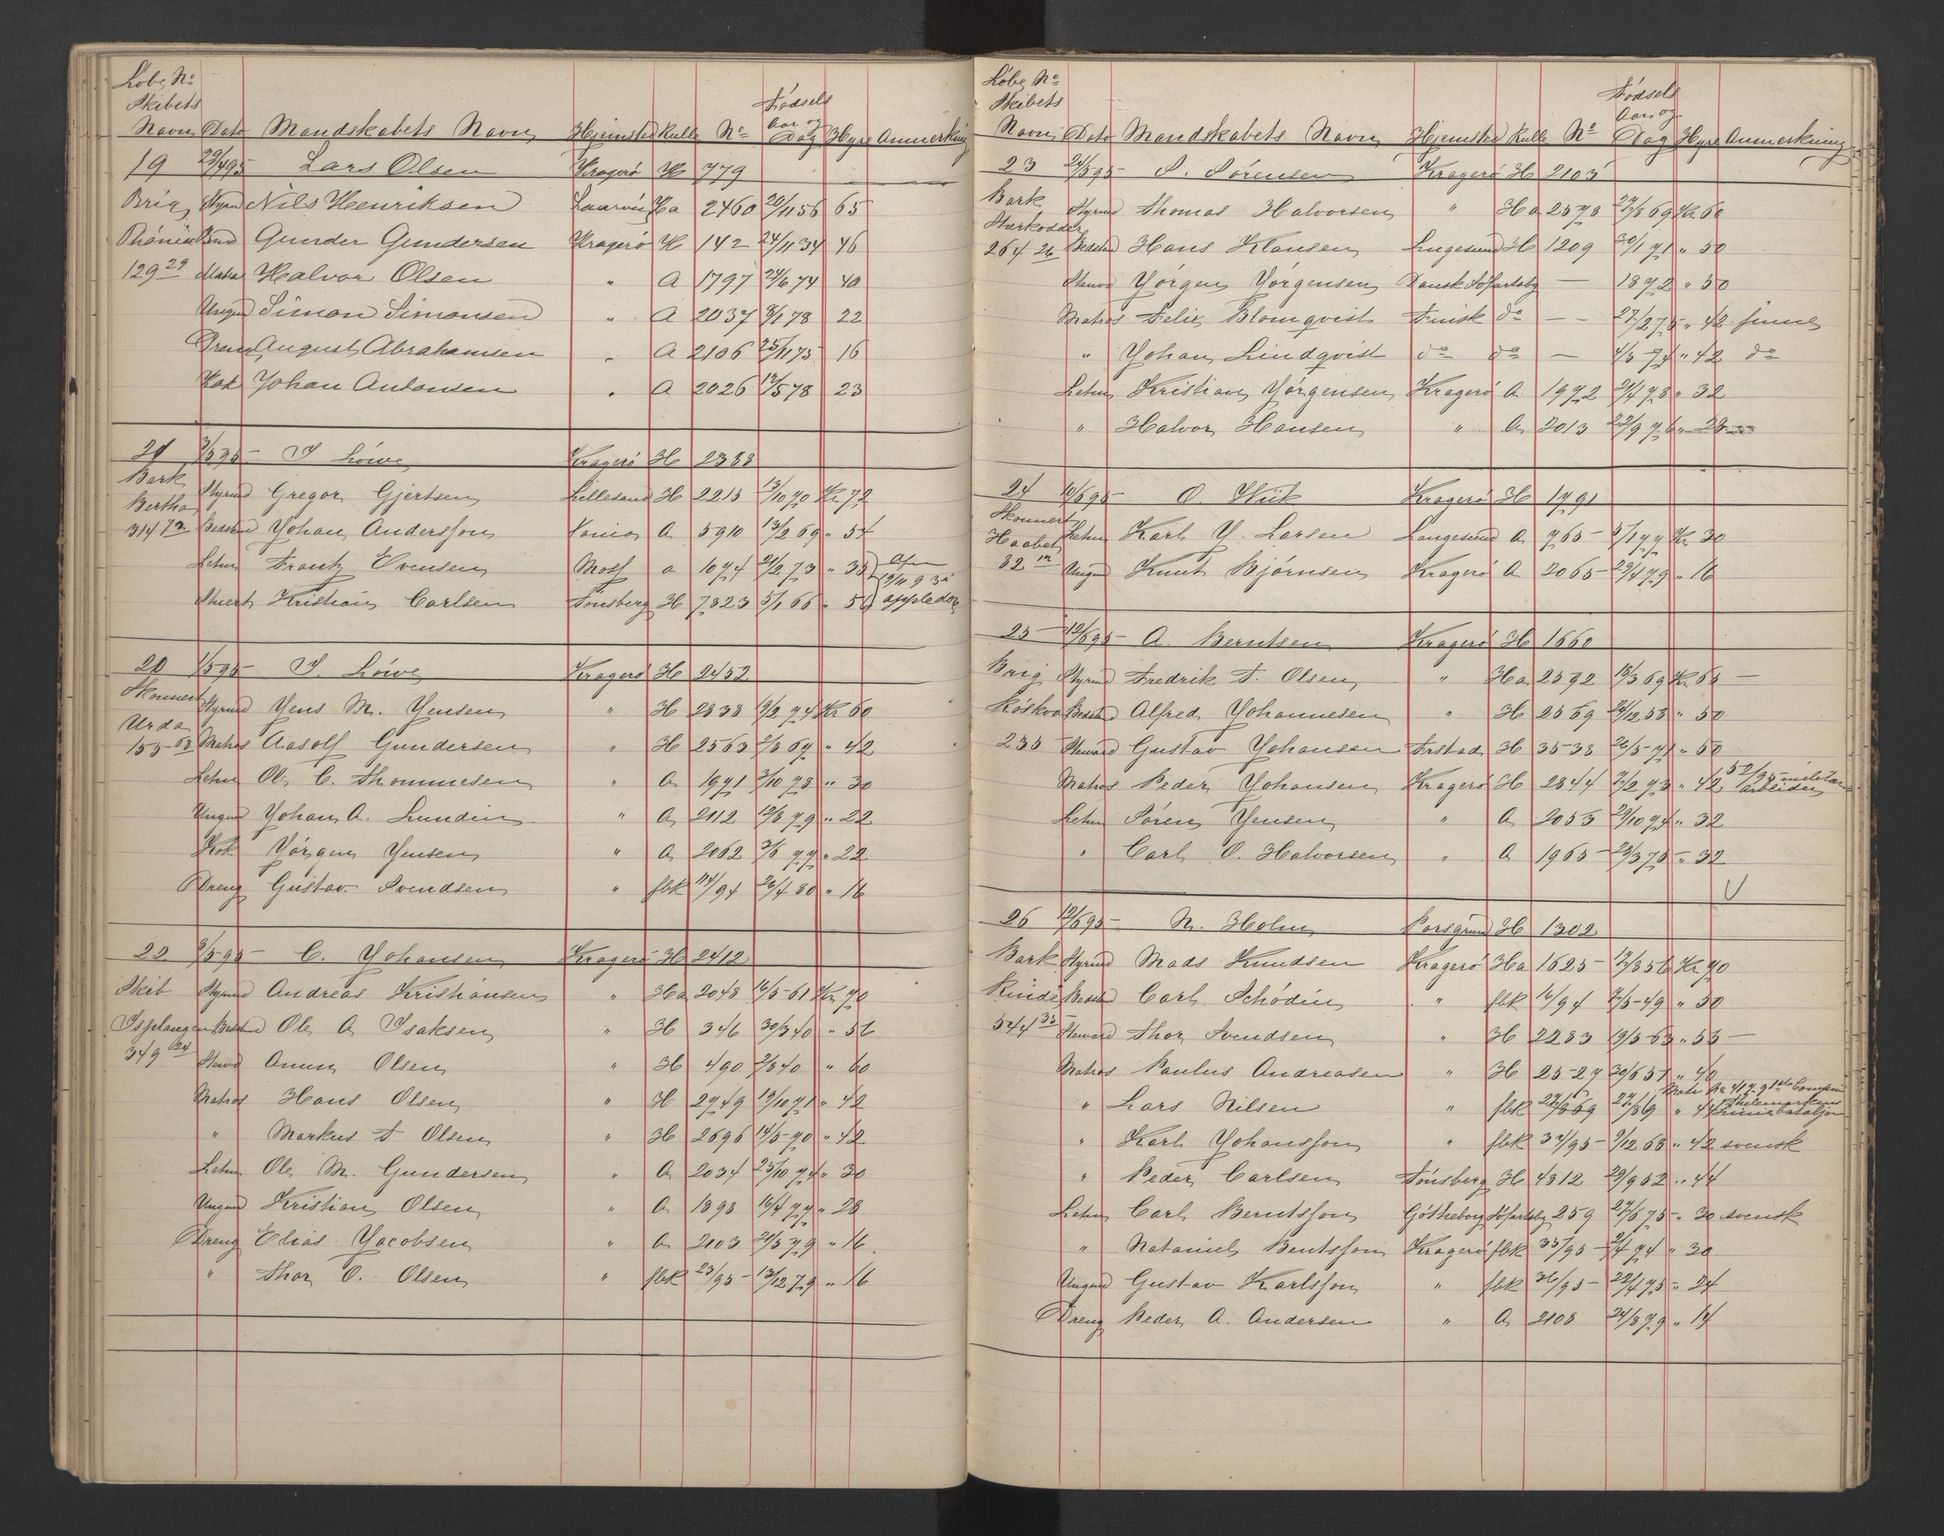 Løbe No
Skibets Navn Dato Mandskabets Navn Hjemsted Rulle No Fødsels Aar og Dag Hyre Anmerkning
19 29/4 95 Lars Olsen Kragerø H 779
Brig Styrmd Nils Henriksen Laurvig Ha 2460 20/11 56 65
Phønix Bmd Gunder Gundersen Kragerø H 142 24/11 34 46
129 29 Matros Halvor Olsen " A 1797 24/6 74 40
Ungmd Simon Simonsen " A 2037 8/1 78 22
Dreng August Abrahamsen " A 2106 25/11 75 16
Kok Johan Antonsen " A 2026 12/5 78 23
21 3/5 95 - I Løwe Kragerø H 2388
Bark Bertha Styrmd Gregor Gjertsen Lillesand H 2215 13/10 70 Kr 72
314 72 Bedstmd Johan Andersson A 5910 13/2 69 " 54
Letm Frantz Evensen Moss a 1074 21/2 73 " 35
Stuert Kristian Carlsen Tønsberg H 7323 5/1 66 " 50
20 1/5 95 - I. Løwe Kragerø H 2452
Skonnert Styrmd Jens M. Jensen " H 2338 9/2 74 Kr 60
Urda 153 - 63 Matros Aasolf Gundersen " H 2563 2/8 67 " 42
Letm Ole C. Thommesen " A 1971 3/10 78 " 30
Ungmd Johan A. Lundin " A 2112 12/8 79 " 22
Kok Jørgen Jensen " A 2062 3/6 77 " 22
Dreng Gustav Svendsen " fbk 114/94 26/4 80 " 16
22 8/5 95 - C. Johansen Kragerø H 2412
Skib Styrmd Andreas Kristiansen " Ha 2048 16/5 - 61 Kr 70
Bedstmd Ole A Isaksen " H 346 30/3 40 " 56
349 24 Stewd Anun Olsen " H 490 2/3 40 " 60
Matros Hans Olsen " H 2749 19/10 71 " 42
" Markus F Olsen " H 2696 14/5 - 70 " 42
Letm Ole M. Gundersen " A 2034 25/10 74 " 30
Ungmd Kristian Olsen " A 1898 16/4 77 " 28
Dreng Elias Jacobsen " A 2103 21/5 79 " 16
" Thor O. Olsen " fbk 23/95 - 13/12 79 " 16
Løbe No
Skibets Navn Dato Mandskabets Navn Hjemsted Rulle No Fødsels Aar og Dag Hyre Anmerkning
23 24/5 95 - S. Sørensen Kragerø H 2105
Bark Styrmd Thomas Halvorsen " Ha 2578 27/8 69 Kr 60
Stærkodder 264 26 Bedstmd Hans Klausen Langesund H 1209 30/1 71 " 50
Stewd Jørgen Jørgensen Dansk Søfartsbg — 1872 " 50
Matros Felix Blomqvist Finsk do — — 27/2 75 " 42 finne
" Johan Lindqvist do do — 4/3 74 " 42 do
Letm Kristian Jørgensen Kragerø A 1972 21/4 78 " 32
" Halvor Hansen " A 2013 22/9 76 " 28
24 10/6 95 - O. Wiik Kragerø H 1791
Skonnert Haabet Letm Karl J. Larsen Langesund A 765 - 5/1 77 Kr 30
32 12 Ungmd Knut Bjørnsen Kragerø A 2065 - 29/4 79 " 16
25 - 12/6 95 - A. Berntsen Kragerø H 1660
Brig Styrmd Fredrik F. Olsen " Ha 2572 18/3 69 Kr 65 —
Røskva Bedstmd Alfred Johannesen " H 2569 24/12 53 " 50
235 Steward Gustav Johansen H 35-38 26/5 - 71 " 50
Matros Peder Johansen Kragerø H 2844 7/2 73 " 42
Letm Søren Jensen " A 2055 29/10 74 " 32
" Carl O. Halvorsen " A 1965 - 23/3 75 - 32
26 12/6 95 - N. Holm Porsgrund H 1302
Bark Styrmd Mads Knudsen Kragerø Ha 1625 - 13/8 56 Kr 70
Bedstmd Carl Schødin " fbk 16/94 7/5 - 49 " 50
544 35 Steward Thor Svendsen " H 2283 19/5 - 63 " 55 —
Matros Paulus Andreasen " H 25-27 30/6 51 " 40
" Lars Nilsen " fbk
" Karl Johansson " fbk 34/95 - 9/12 68 " 42 svensk
" Peder Carlsen Tønsberg H 4812 29/9 52 " 44
Letm Carl Berntsson Gøtheborg Søfartsbg 259 27/6 75 - " 30 svensk
" Nataniel Bentsson Kragerø fbk 35/95 - 2/4 74 " 30
Ungmd Gustav Karlsson " fbk 36/95 - 22/4 75 - " 24
Dreng Peder A. Andersen " A 2108 24/8 79 " 14